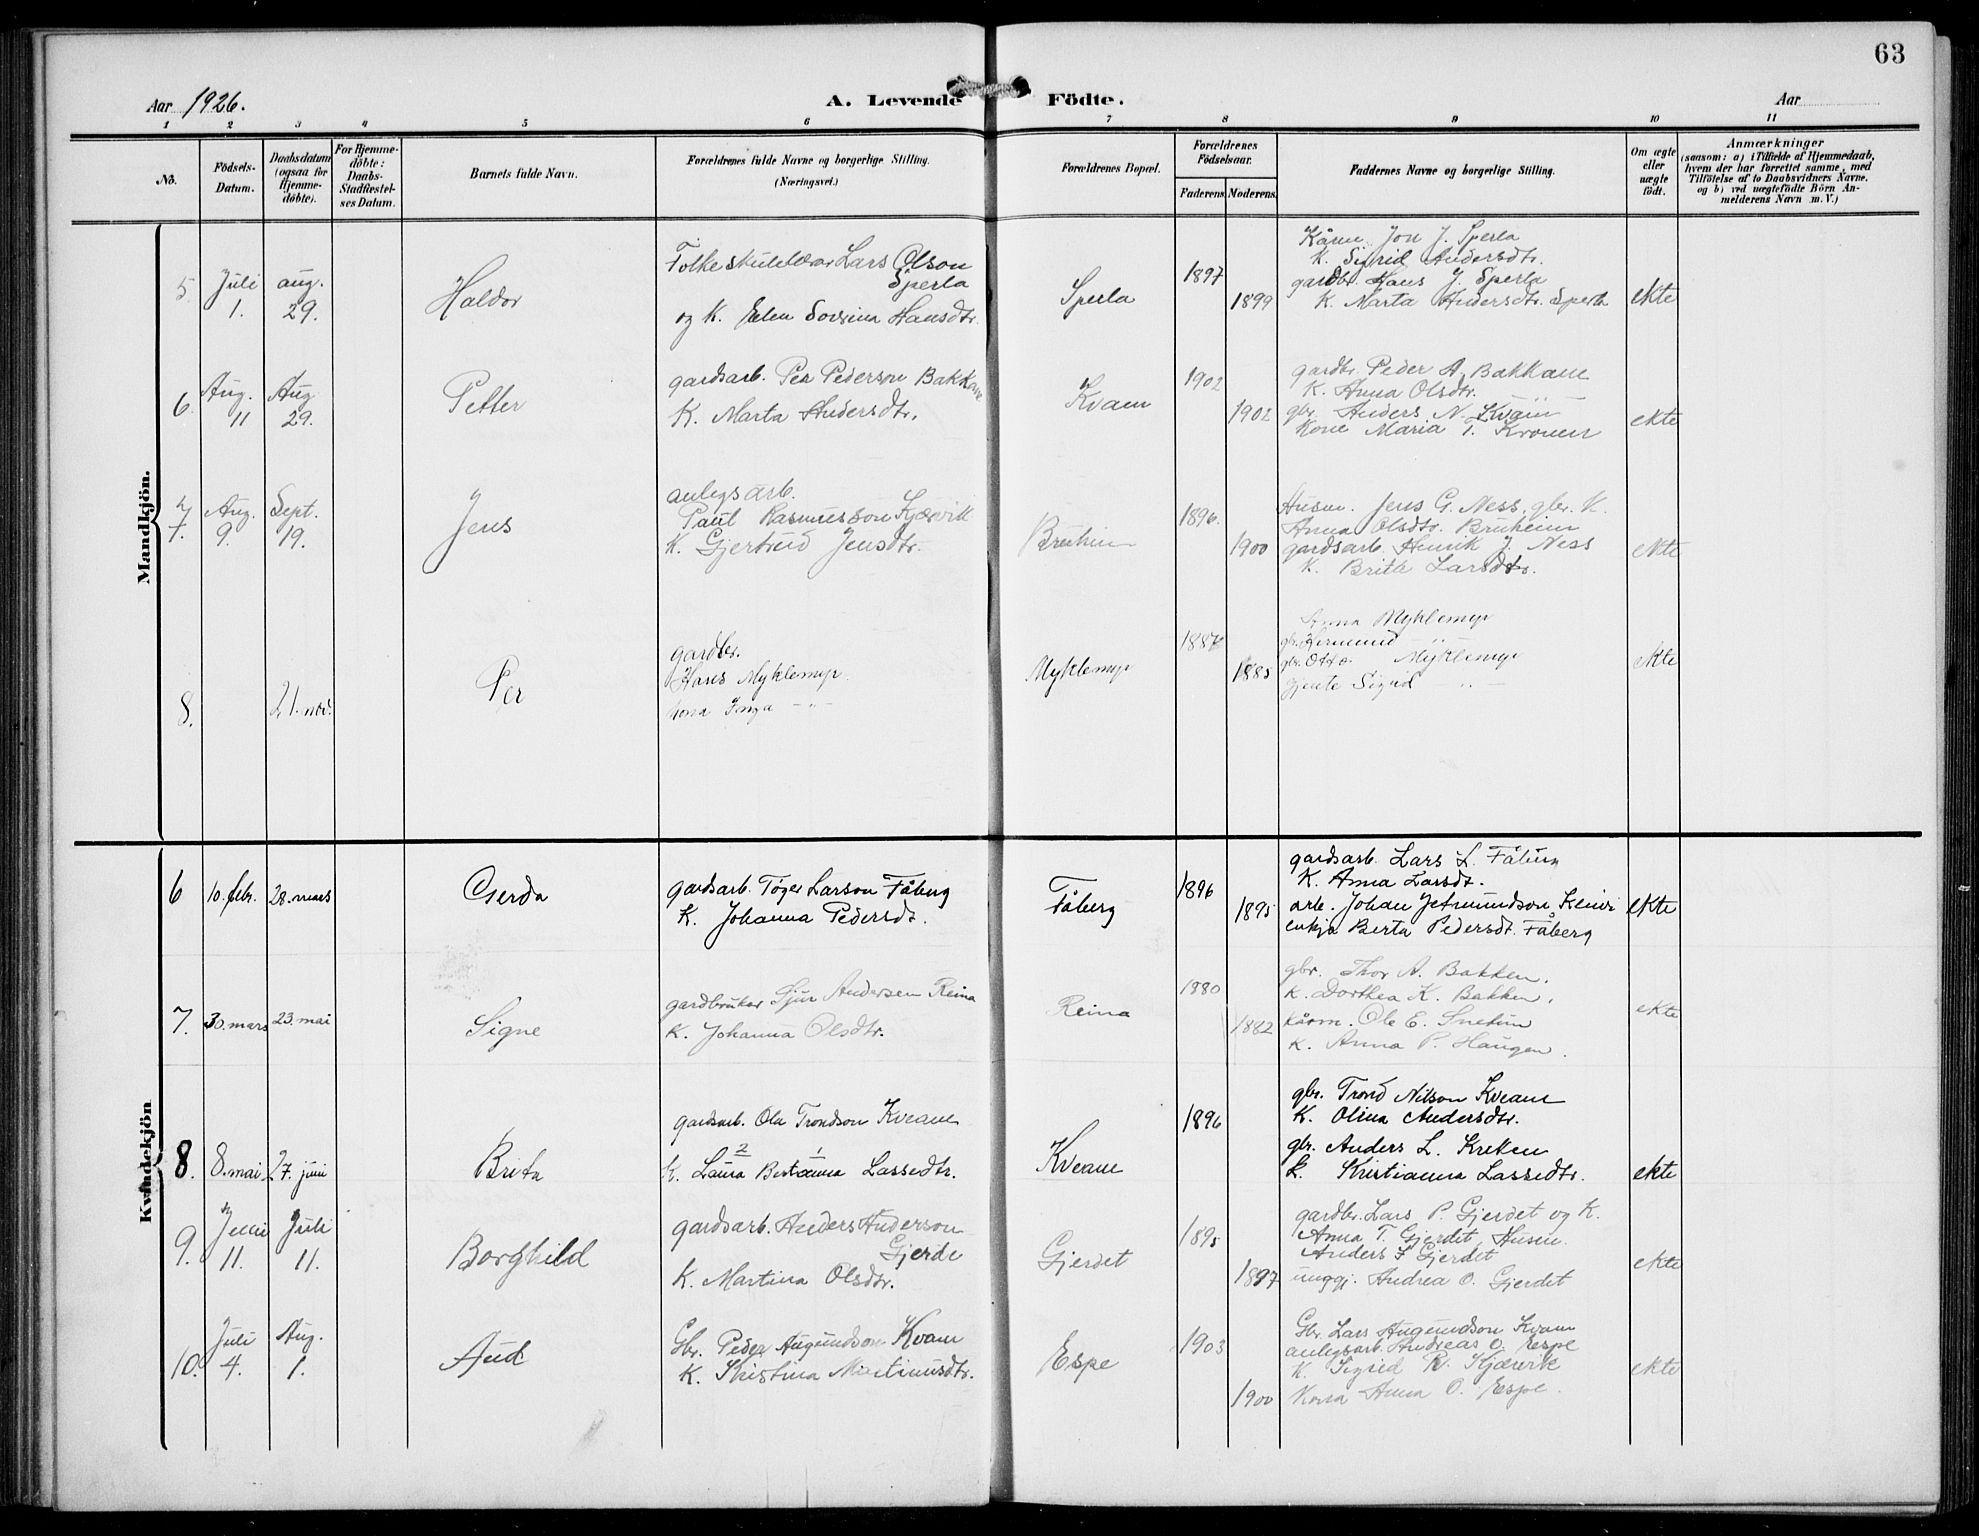 63
Aar 1926.
A. Levende Födte.
Aar
1 2 3 4 5 6 7 8 9 10 11
No.
Födsels-Datum.
Daabsdatum (ogsaa for Hjemme-döbte).
For Hjemme-döbte: Daabs-Stadfæstel-ses Datum.
Barnets fulde Navn.
Forældrenes fulde Navne og borgerlige Stilling.
(Næringsvei.)
Forældrenes Bopæl.
Forældrenes Födselsaar.
Faderens. Moderens.
Faddernes Navne og borgerlige Stilling.
Om ægte eller uægte födt.
Anmærkninger
(saasom: a) i Tilfælde af Hjemmedaab,
hvem der har forrettet samme, med
Tilföielse af to Daabsvidners Navne.
og b) ved uægtefödte Börn An-
melderens Navn m. V.)
Mandkjön.
5. Juli 1. aug. 29. Haldor
Folkeskulelærar Lars Olson
Sperla
og K. Elen Sovsina Hansdtr.
Sperla 1897 1899
Kårm. Jon J. Sperla
K. Sigrid Andersdtr.
gardbr. Hans J. Sperla
K. Marta Andersdtr. Sperla
ekte
6. Aug. 11 Aug 29. Petter
gardsarb. Per Pederson Bakkane
K. Marta Andersdtr.
Kvam 1902 1902
gardbr. Peder A. Bakkane
K. Anna Olsdtr.
gbr. Anders N. Kvam
Kone Maria T. Kronen
ekte
7. Aug. 9. Sept. 19. Jens
anlegsarb.
Paul Rasmusson Kjærvik
K. Gjertrud Jensdtr.
Bruheim 1896. 1900
Husm. Jens G. Ness, gbr. K.
Anna Olsdtr. Bruheim
gardsarb. Henrik J. Ness
K. Brita Larsdtr.
ekte
8. 21. nov. Per
gardbr.
Hans Myklemyr
kona Inga –"–
Myklemyr 1885
Anna Myklemyr
gbr. Otto Myklemyr
gjente Sigrid –"–
ekte
Kvindekjön
6 10. febr. 28. mars Gerda
gardsarb. Tøger Larson Fåberg
K. Johanna Pedersdt.
Fåberg 1896 1895
gardsarb. Lars L. Fåberg
K. Anna Larsdt.
arb. Johan Jetmundson
enkja Berta Pedersdt. Fåberg
ekte
7. 30. mars 23. mai Signe
gardbrukar Sjur Andersen Reina
K. Johanna Olsdtr.
Reina 1880 1882
gbr. Thor A. Bakken.
K. Dorthea K. Bakken.
kårm. Ole E. Snetun
K. Anna P. Haugen.
ekte
8. 8. mai 27. juni Brita
gardsarb. Ola Trondson Kveane
2 1
K. Laura Bertanna Lassedtr.
Kveane 1896
gbr. Trond Nilson Kveane
K. Olina Andersdtr.
gbr. Anders L. Kreken
k. Kristianna Lassedtr.
ekte
9. Juni 11. Juli 11. Borghild
gardsarb. Anders Anderson
Gjerde
K. Martina Olsdtr.
Gjerdet 1895 1897
gardbr. Lars P. Gjerdet og K.
Anna T. Gjerdet, Husm.
Anders Gjerdet
unggj. Andrea O. Gjerdet
ekte
10. Juli 4. Aug. 1. Aud
Gbr. Peder Augundson Kvam
K. Kristina Martinusdtr.
Espe 1903 1900
Gbr. Lars Augundson Kvam
anlegsarb. Andreas O. Espe
K. Sigrid R. Kjærvik
Kona Anna O. Espe.
ekte